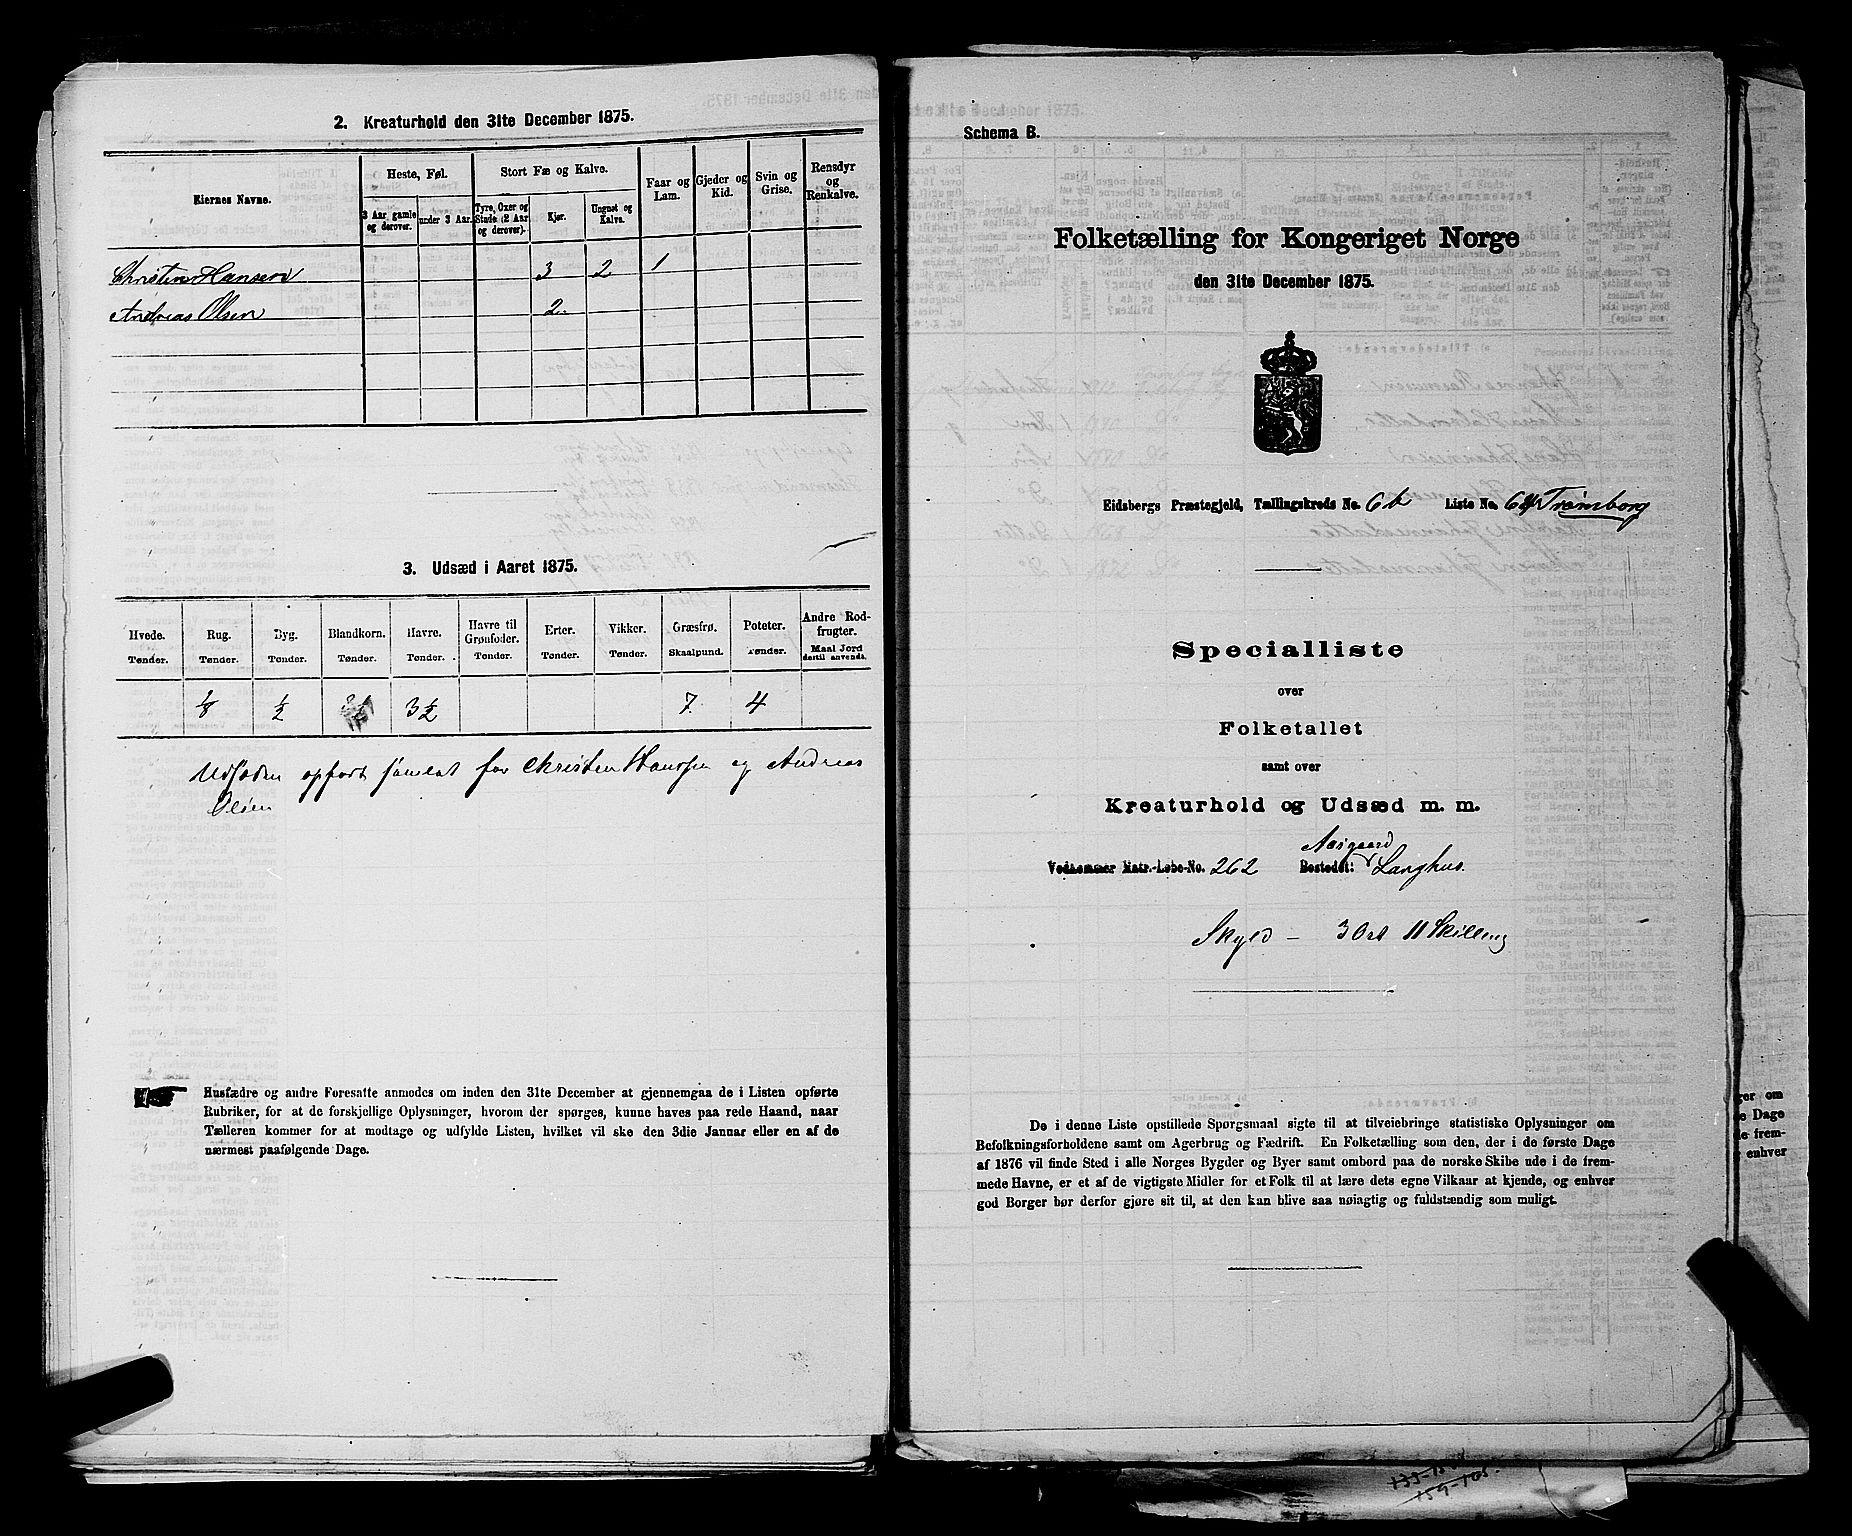 2. Kreaturhold den 31te December 1875.
Eiernes Navne.
Heste, Føl.
Stort Fæ og Kalve.
Faar og Lam.
Gjeder og Kid.
Svin og Grise.
Rensdyr og Renkalve.
3 Aar gamle og derover.
under 3 Aar.
Tyre, Oxer og Stude (2 Aar og derover).
Kjør.
Ungnøt og Kalve.
Christen Hansen 3 2 1
Andreas Olsen 2.
3. Udsæd i Aaret 1875.
Hvede. Rug. Byg. Blandkorn. Havre. Havre til Grønfoder. Erter. Vikker. Græsfrø. Poteter. Andre Rodfrugter.
Tønder. Tønder. Tønder. Tønder. Tønder. Tønder. Tønder. Tønder. Skaalpund. Tønder. Maal Jord dertil anvendt.
1/8 1/2 3 1/2 7. 4
Udsæden opført samlet for Christen Hanssen og Andreas
Olsen
Husfædre og andre Foresatte anmodes om inden den 31te December at gjennemgaa de i Listen opførte
Rubriker, for at de forskjellige Oplysninger, hvorom der spørges, kunne haves paa rede Haand, naar
Tælleren kommer for at modtage og udfylde Listen, hvilket vil ske den 3die Januar eller en af de
nærmest paafølgende Dage.
Schema B.
Folketælling for Kongeriget Norge
den 31te December 1875.
Eidsbergs Præstegjeld, Tællingskreds No. 6b Liste No. 64 Trømborg
Specialliste
over
Folketallet
samt over
Kreaturhold og Udsæd m. m.
Aasgaard
Vedkommer Matr.-Løbe-No. 262 Bostedet: Langhus.
Skyld – 3 Ort 11 Skilling
De i denne Liste opstillede Spørgsmaal sigte til at tilveiebringe statistiske Oplysninger om
Befolkningsforholdene samt om Agerbrug og Fædrift. En Folketælling som den, der i de første Dage
af 1876 vil finde Sted i alle Norges Bygder og Byer samt ombord paa de norske Skibe ude i de frem-
mede Havne, er et af de vigtigste Midler for et Folk til at lære dets egne Vilkaar at kjende, og enhver
god Borger bør derfor gjøre sit til, at den kan blive saa nøiagtig og fuldstændig som muligt.